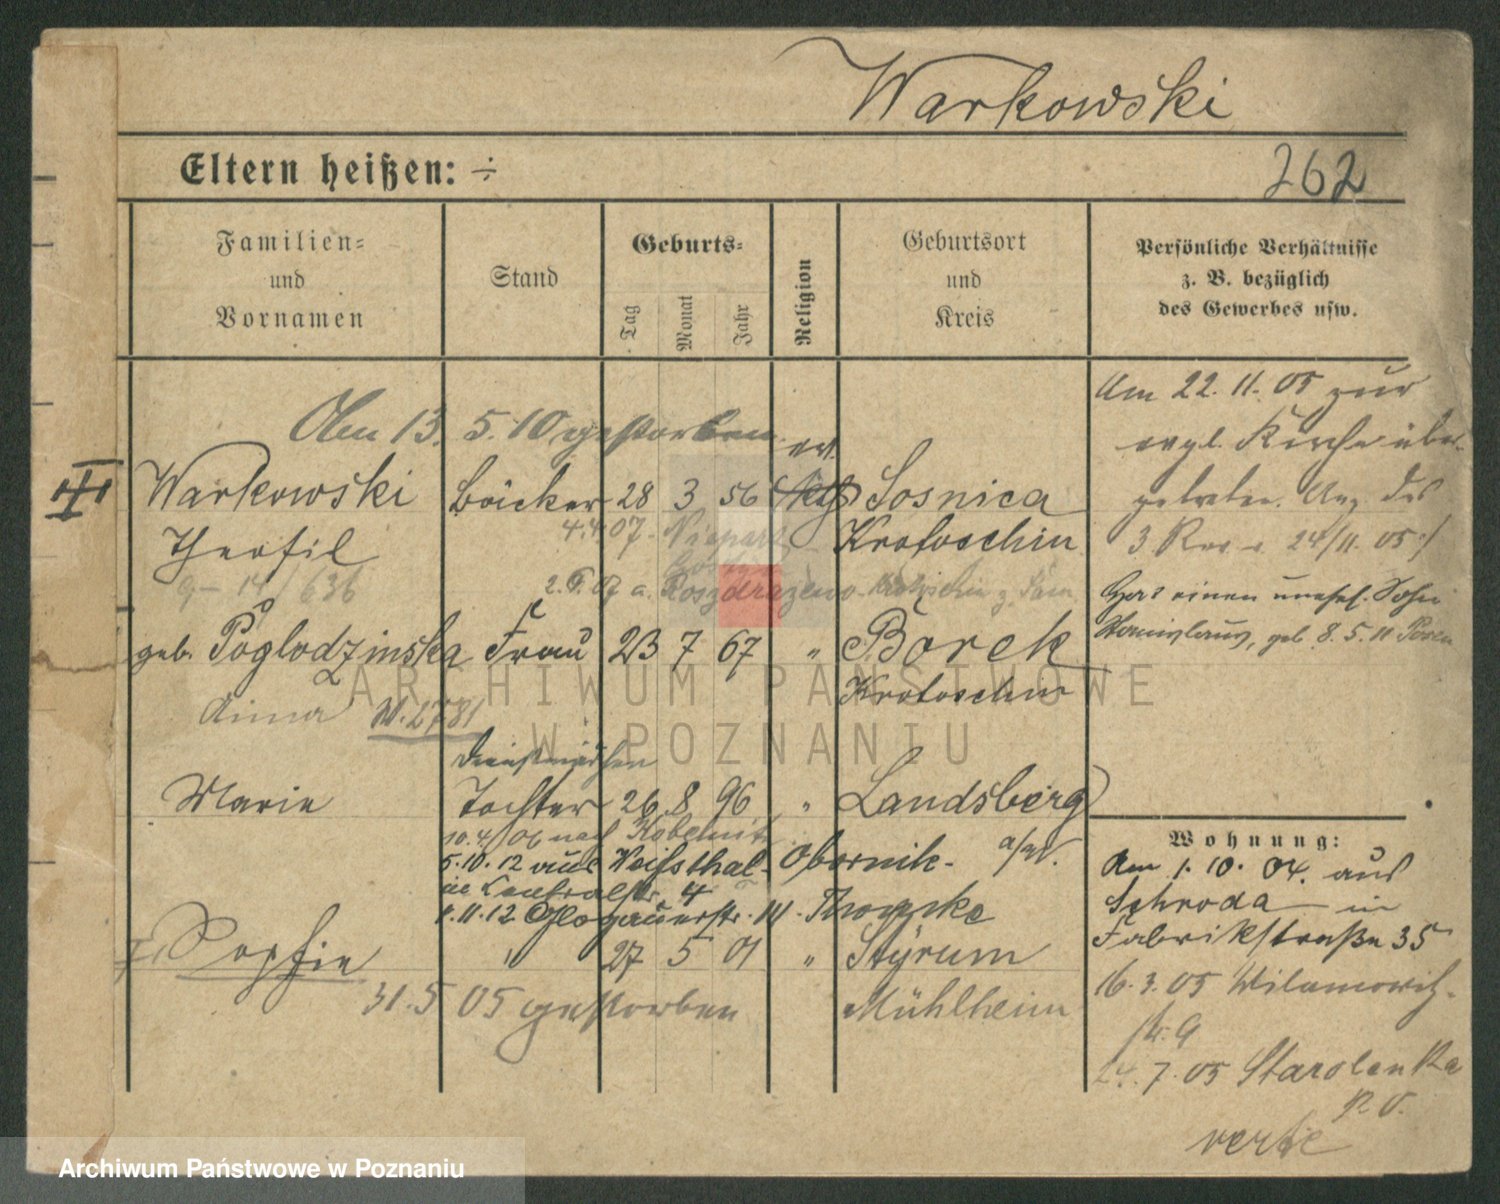 Warkowski
Eltern heißen: ÷
262
Familien=
und
Vornamen
Stand
Geburts=
Tag
Monat
Jahr
Religion
Geburtsort
und
Kreis
Persönliche Verhältnisse
z. B. bezüglich
des Gewerbes usw.
Am 13. 5. 10 gestorben
ev.
III
Warkowski
Bäcker
28 3 56
Sosnica
Theofil
4.4.07.
Krotoschin
636
geb. Poglodzinska
Frau
23 7 67
"
Borek
Krotoschin
Dienstmädchen
Marie
Tochter
26 8 96
"
Landsberg
a/W.
10.4.06 nach Kobelnitz
5.10.12 aus Weissthal-
Obornik-
11.11.12 Glogauerstr.
Sophie
"
27 5 01
"
Styrum
Mühlheim
31. 5 05 gestorben
Am 22. 11. 05 zur
evgl. Kirche über-
getreten.
24/11. 05
Hat einen unehel. Sohn
Stanislaus, geb. 8. 5. 11 Posen
Wohnung:
Am 1. 10. 04. aus
Schroda in
Fabrikstraße 35
16. 3. 05 Wilamowitz-
str. 9
24. 7. 05 Starolenka
verte
ARCHIWUM PAŃSTWOWE
W POZNANIU
Archiwum Państwowe w Poznaniu